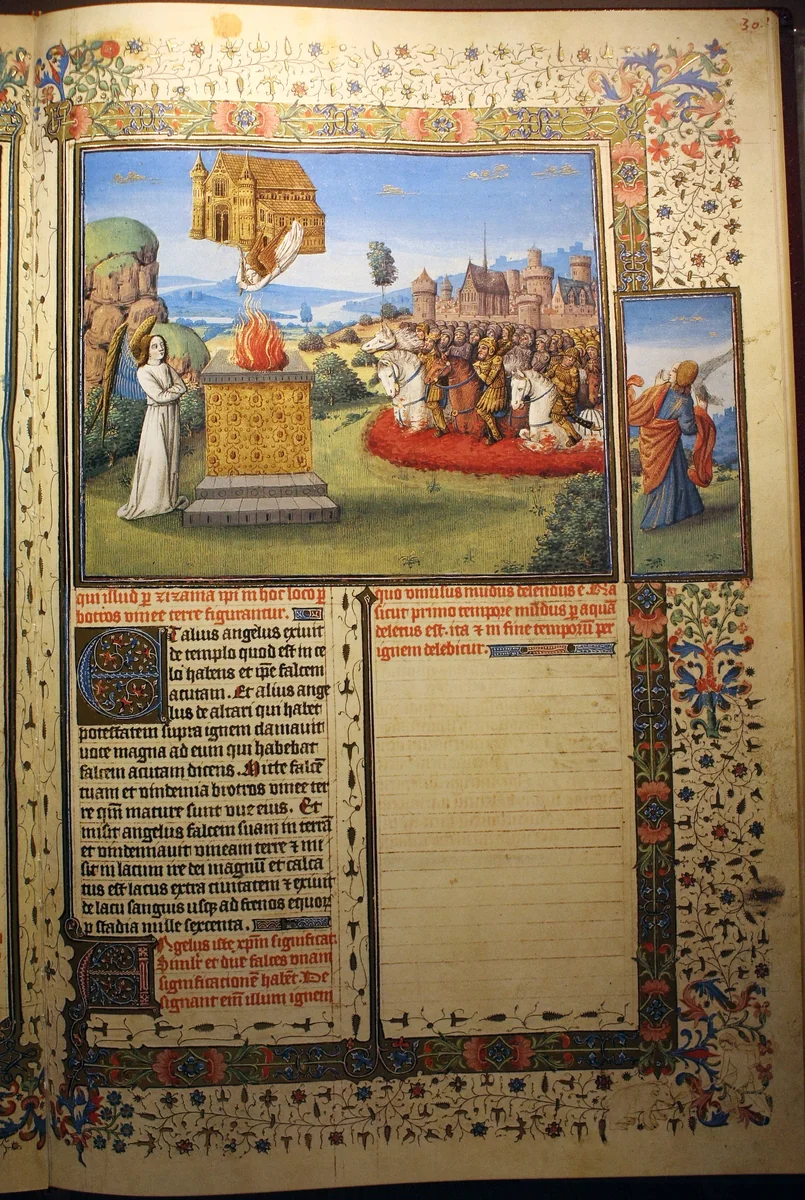 30.
qui illud p zizania ipi in hoc loco p
botros vinee terre figurantur.
Et alius angelus exiuit
de templo quod est in ce
lo habens et ipe falcem
acutam. Et alius ange
lus de altari qui habet
potestatem supra ignem clamauit
uoce magna ad eum qui habebat
falcem acutam dicens. Mitte falcē
tuam et vindemia brotros vinee ter
re qm̄ mature sunt vue eius. Et
misit angelus falcem suam in terrā
et vindemiauit vineam terre ⁊ mi
sit in lacum ire dei magnū et calca
tus est lacus extra ciuitatem ⁊ exiuit
de lacu sanguis usqȝ ad frenos equoꝝ
p stadia mille sexcenta.
Angelus iste xpm̄ significat.
Simlr et due falces vnam
significationē habēt. De
signant eīm illum ignem
quo vniuersus mūdus delendus ē.
sicut primo tempore mūdus p aquā
deletus est. ita ⁊ in fine temporū per
ignem delebitur.